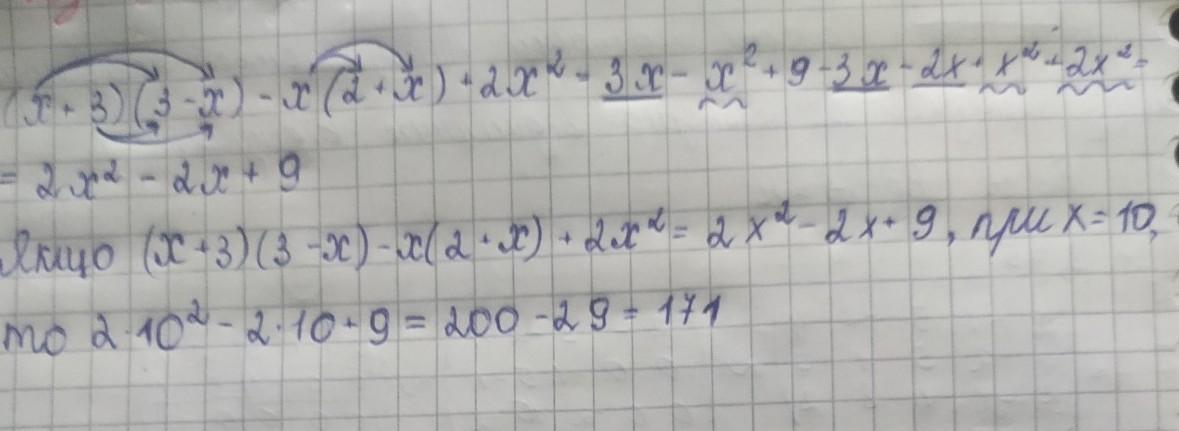 (x + 3)(3 - x) - x(2 + x) + 2x² = 3x - x² + 9 - 3x - 2x + x² + 2x² =
= 2x² - 2x + 9
Якщо (x + 3)(3 - x) - x(2 + x) + 2x² = 2x² - 2x + 9, при x = 10,
то 2·10² - 2·10 + 9 = 200 - 29 = 171